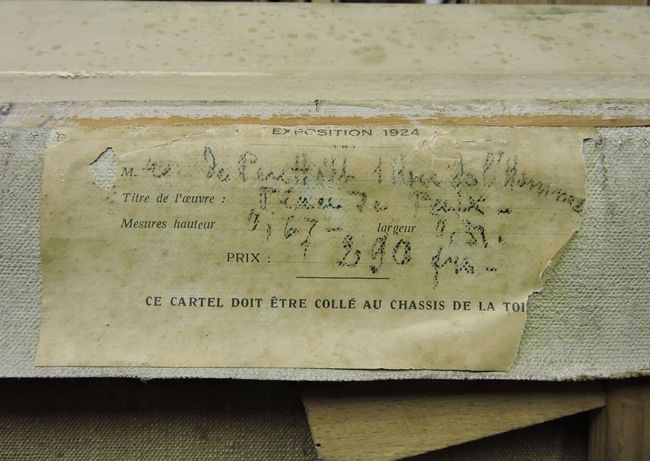 EXPOSITION 1924
M. de 1 Rue de l'Homme
Titre de l'œuvre : de
Mesures hauteur 0,67 - largeur 0,51.
PRIX : 290 frs -
CE CARTEL DOIT ÊTRE COLLÉ AU CHASSIS DE LA TOI